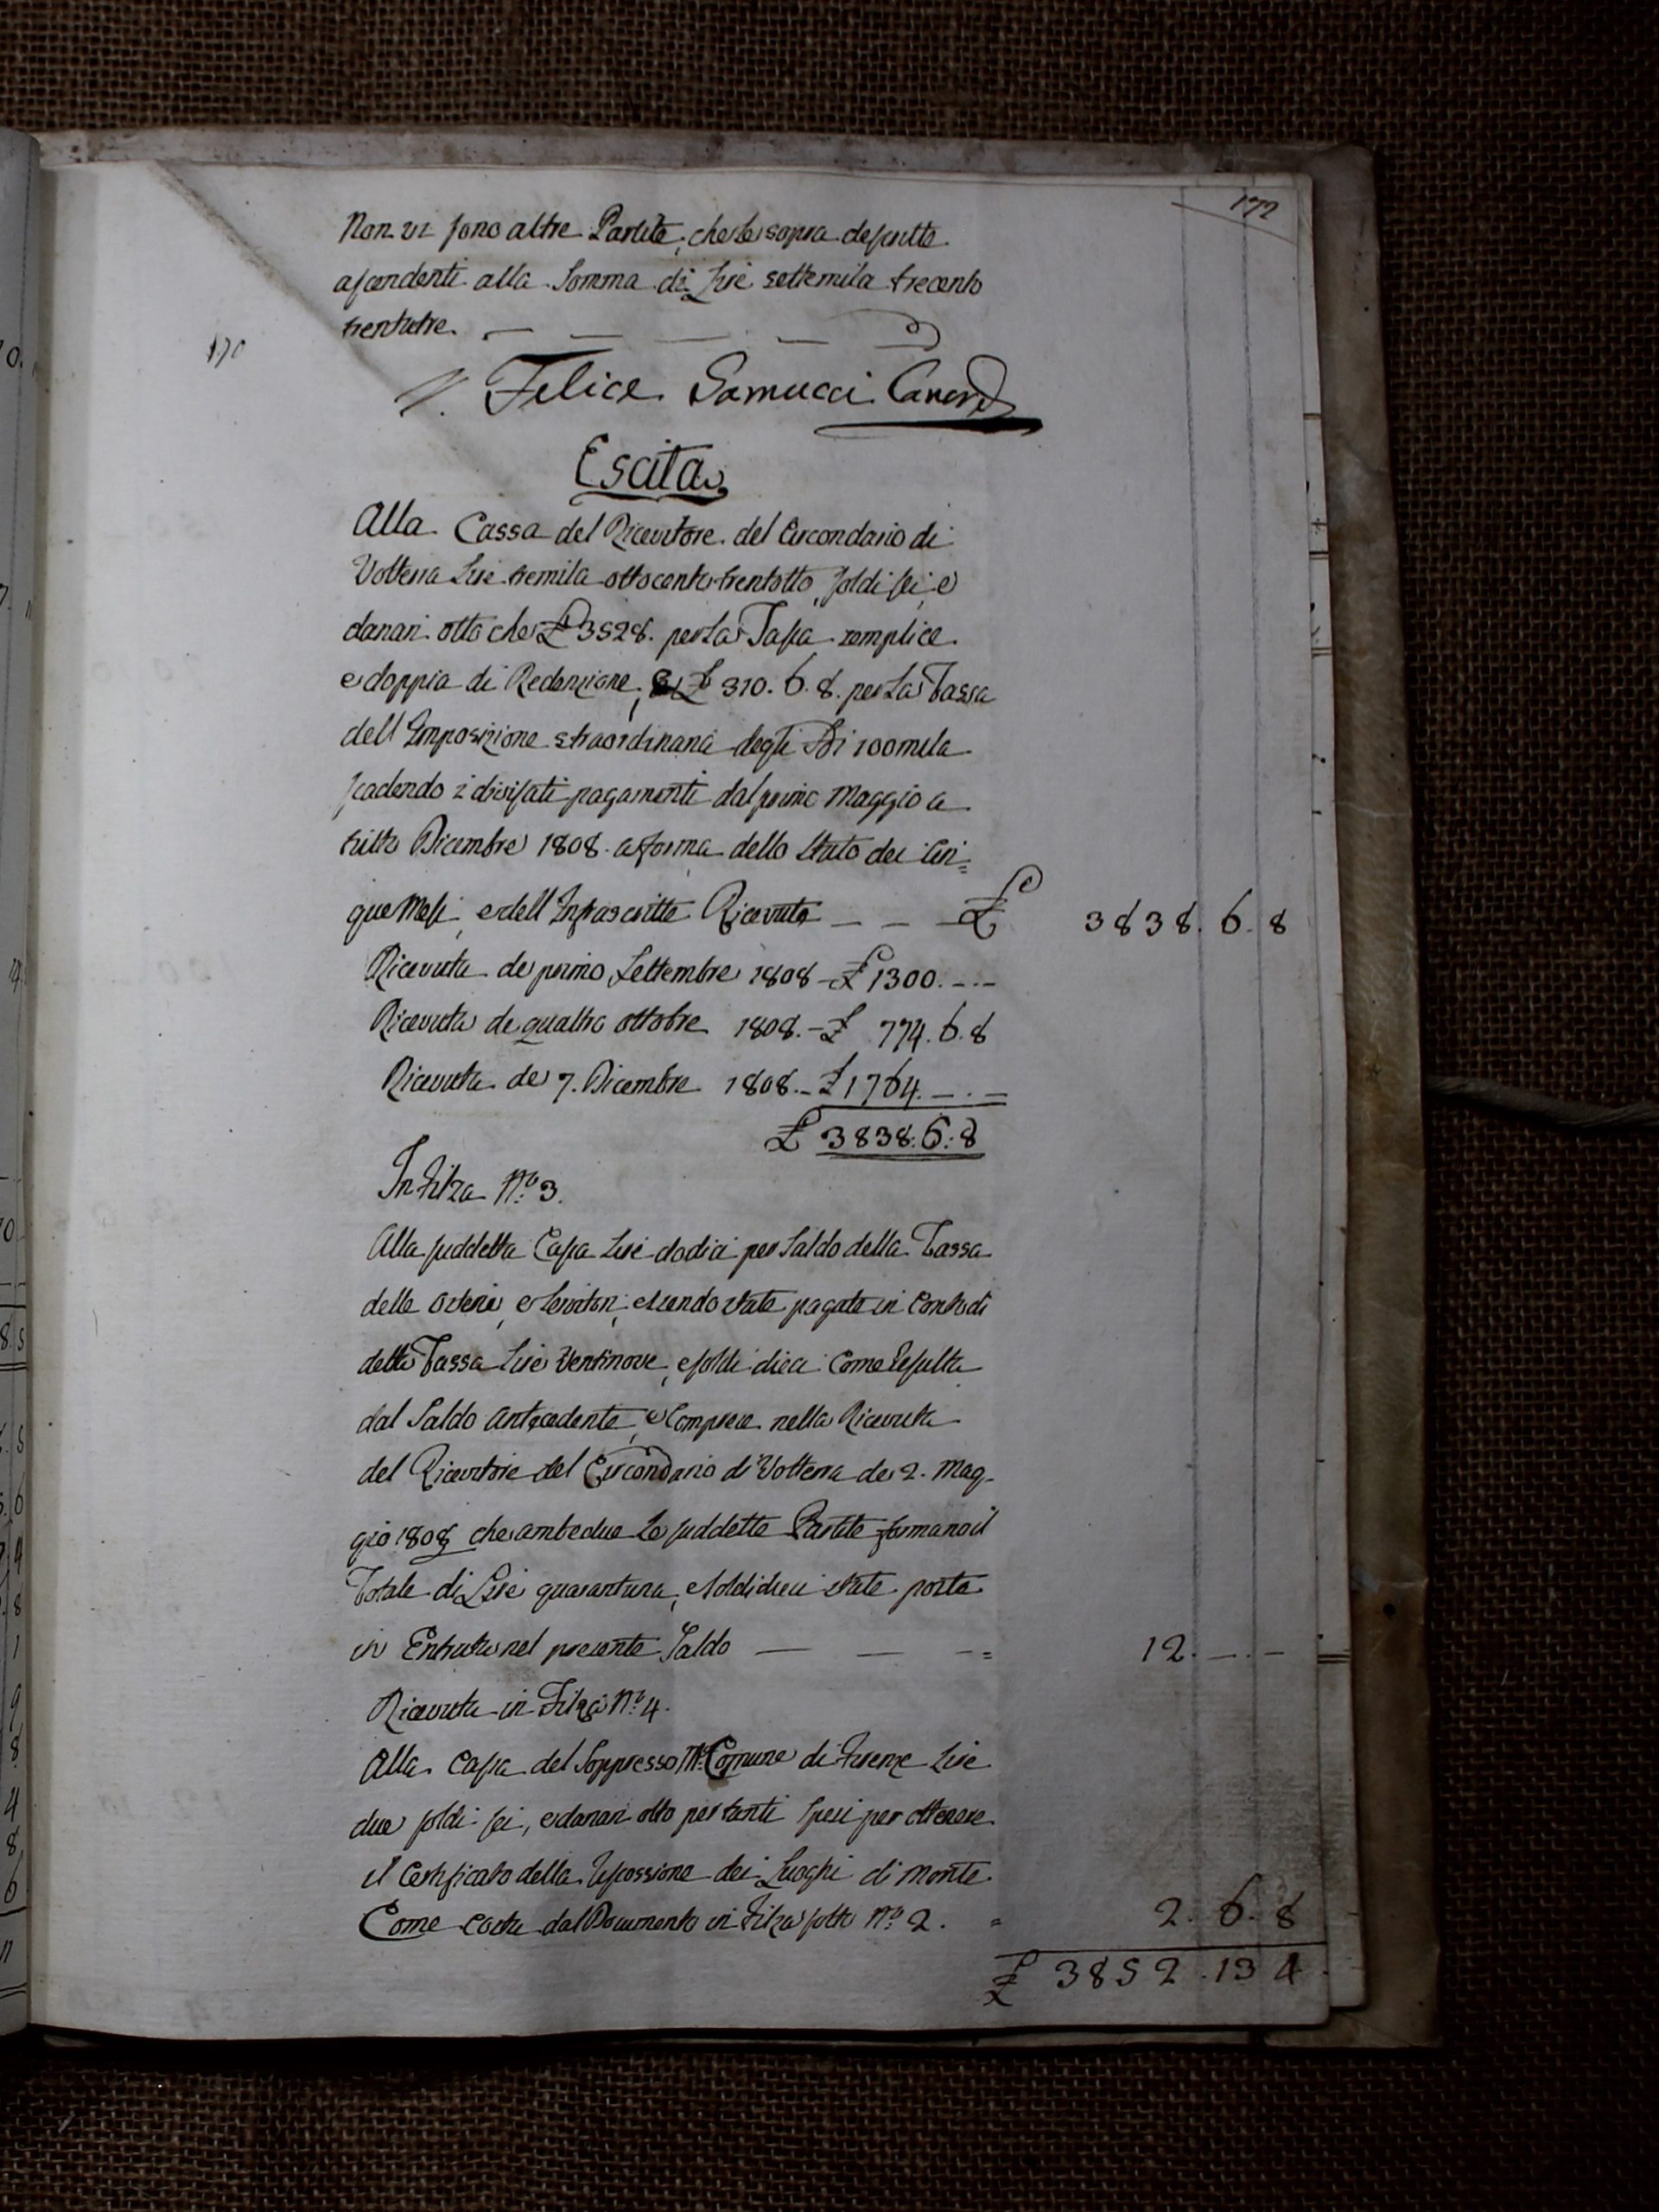 172
Non vi sono altre Partite, che le sopra descritte
ascendenti alla Somma di Lire settemila trecento
trentatre.
170
Felice Samucci Canc.
Escita
Alla Cassa del Ricevitore del Circondario di
Volterra Lire tremila ottocento trentotto, soldi sei, e
danari otto che £ 3528. per la Tassa semplice
e doppia di Redenzione, e £ 310. 6. 8. per la Tassa
dell Imposizione straordinaria degli Sdi 100mila
scadendo i divisati pagamenti dal primo Maggio a
tutto Dicembre 1808. a forma dello Stato dei Cin=
que Mesi, e dell Infrascritte Ricevute — — £ 3838. 6. 8
Ricevuta de primo Settembre 1808 - £ 1300. -.-
Ricevuta de quattro ottobre 1808. - £ 774. 6. 8
Ricevuta de 7. Dicembre 1808. - £ 1764. -.-
£ 3838. 6. 8
In Filza N.o 3.
Alla suddetta Cassa Lire dodici per Saldo della Tassa
delle Osterie, e Servitori, essendo state pagate in Conto di
detta Tassa Lire Ventinove, e soldi dieci Come Resulta
dal Saldo Antecedente, e Comprese nella Ricevuta
del Ricevitore del Circondario di Volterra de 2. Mag-
gio 1808 che ambedue le suddette Partite formano il
Totale di Lire quarantuna, e soldi dieci state porte
in Entrata nel presente Saldo — — = 12. -.-
Ricevuta in Filza N.o 4.
Alla Cassa del Soppresso Comune di Firenze Lire
due soldi sei, e danari otto per tanti spesi per ottenere
il Certificato della Riscossione dei Luoghi di Monte
Come costa dal Documento in Filza sotto N.o 2. = 2. 6. 8
£ 3852. 13 4